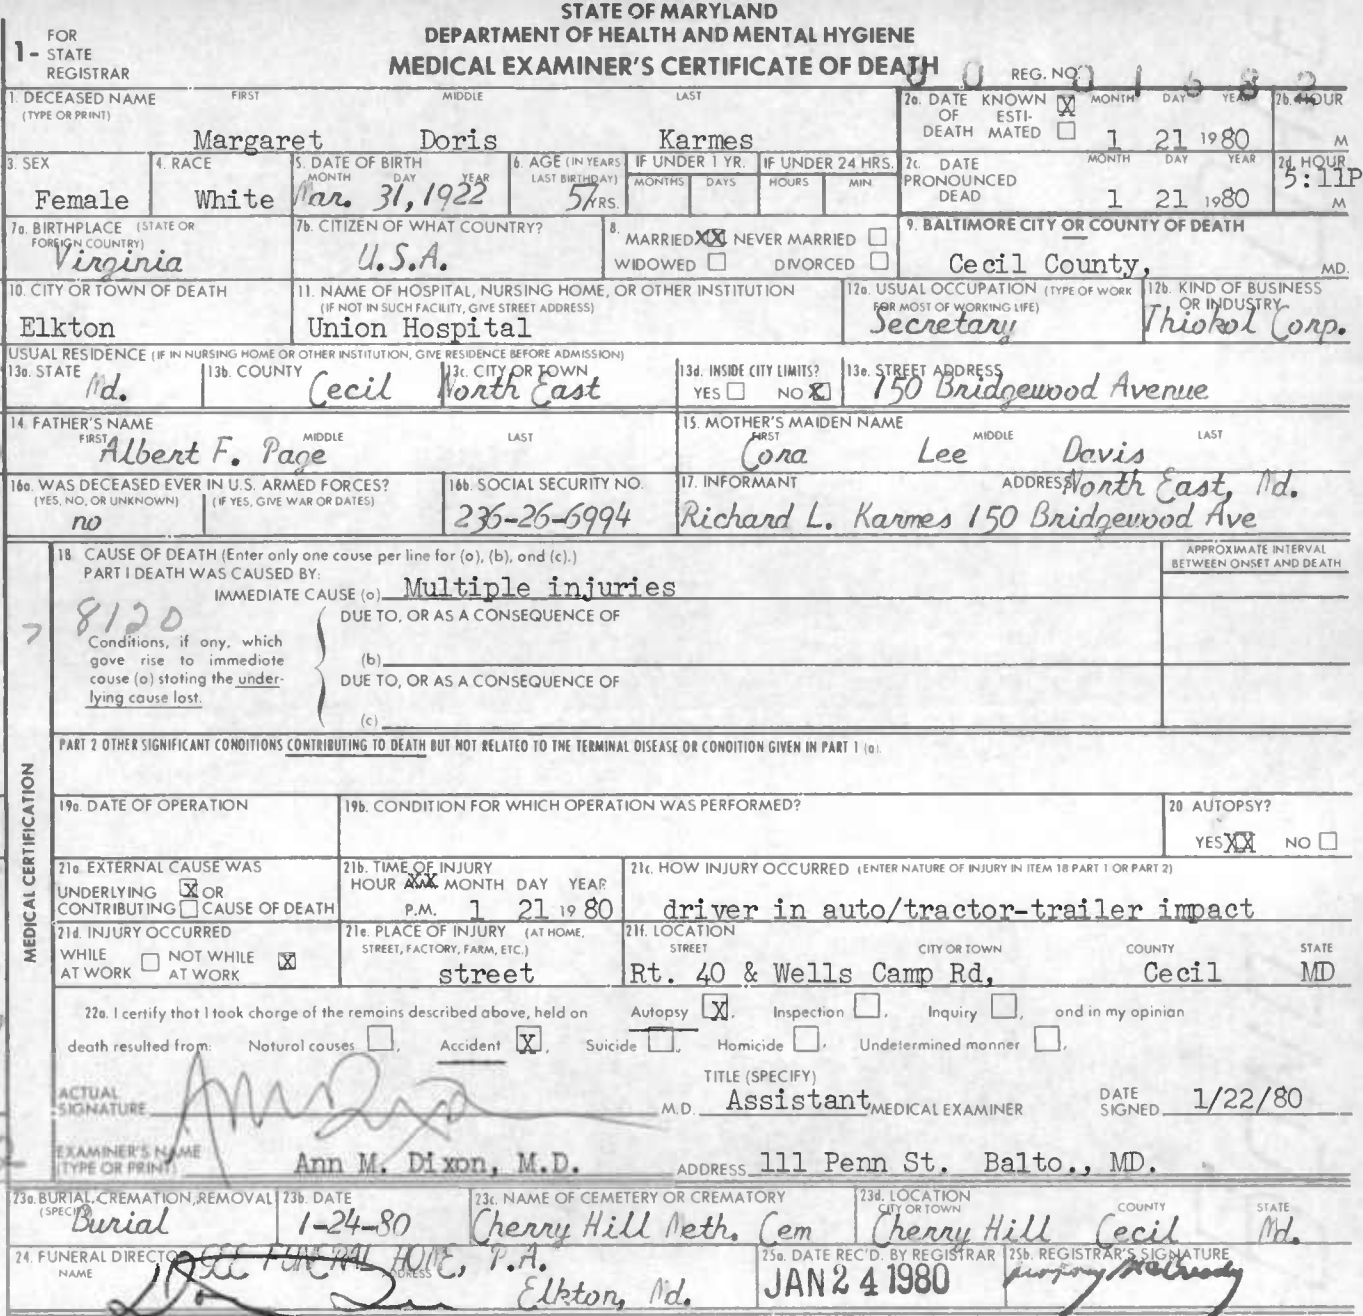 STATE OF MARYLAND
DEPARTMENT OF HEALTH AND MENTAL HYGIENE
MEDICAL EXAMINER'S CERTIFICATE OF DEATH
1- FOR STATE REGISTRAR
REG. NO.
1. DECEASED NAME (TYPE OR PRINT) FIRST MIDDLE LAST
Margaret Doris Karmes
2a. DATE OF DEATH KNOWN X ESTIMATED MONTH DAY YEAR 2b. HOUR
1 21 1980 M
3. SEX
Female
4. RACE
White
5. DATE OF BIRTH MONTH DAY YEAR
Mar. 31, 1922
6. AGE (IN YEARS LAST BIRTHDAY)
57 YRS.
IF UNDER 1 YR. MONTHS DAYS
IF UNDER 24 HRS. HOURS MIN
2c. DATE PRONOUNCED DEAD MONTH DAY YEAR
1 21 1980
2d. HOUR
5:11P M
7a. BIRTHPLACE (STATE OR FOREIGN COUNTRY)
Virginia
7b. CITIZEN OF WHAT COUNTRY?
U.S.A.
8. MARRIED XX NEVER MARRIED
WIDOWED DIVORCED
9. BALTIMORE CITY OR COUNTY OF DEATH
Cecil County, MD.
10. CITY OR TOWN OF DEATH
Elkton
11. NAME OF HOSPITAL, NURSING HOME, OR OTHER INSTITUTION
(IF NOT IN SUCH FACILITY, GIVE STREET ADDRESS)
Union Hospital
12a. USUAL OCCUPATION (TYPE OF WORK FOR MOST OF WORKING LIFE)
Secretary
12b. KIND OF BUSINESS OR INDUSTRY
Thiokol Corp.
USUAL RESIDENCE (IF IN NURSING HOME OR OTHER INSTITUTION, GIVE RESIDENCE BEFORE ADMISSION)
13a. STATE
Md.
13b. COUNTY
Cecil
13c. CITY OR TOWN
North East
13d. INSIDE CITY LIMITS?
YES NO X
13e. STREET ADDRESS
150 Bridgewood Avenue
14. FATHER'S NAME
FIRST MIDDLE LAST
Albert F. Page
15. MOTHER'S MAIDEN NAME
FIRST MIDDLE LAST
Cora Lee Davis
16a. WAS DECEASED EVER IN U.S. ARMED FORCES?
(YES, NO, OR UNKNOWN) (IF YES, GIVE WAR OR DATES)
no
16b. SOCIAL SECURITY NO.
236-26-6994
17. INFORMANT ADDRESS North East, Md.
Richard L. Karmes 150 Bridgewood Ave
MEDICAL CERTIFICATION
18. CAUSE OF DEATH (Enter only one cause per line for (a), (b), and (c).)
APPROXIMATE INTERVAL BETWEEN ONSET AND DEATH
PART I DEATH WAS CAUSED BY:
IMMEDIATE CAUSE (a) Multiple injuries
8120
DUE TO, OR AS A CONSEQUENCE OF
Conditions, if any, which gave rise to immediate cause (a) stating the underlying cause last.
(b)
DUE TO, OR AS A CONSEQUENCE OF
(c)
PART 2 OTHER SIGNIFICANT CONDITIONS CONTRIBUTING TO DEATH BUT NOT RELATED TO THE TERMINAL DISEASE OR CONDITION GIVEN IN PART 1 (a).
19a. DATE OF OPERATION
19b. CONDITION FOR WHICH OPERATION WAS PERFORMED?
20 AUTOPSY?
YES XX NO
21a EXTERNAL CAUSE WAS
UNDERLYING X OR
CONTRIBUTING CAUSE OF DEATH
21b. TIME OF INJURY
HOUR MONTH DAY YEAR
P.M. 1 21 1980
21c. HOW INJURY OCCURRED (ENTER NATURE OF INJURY IN ITEM 18 PART 1 OR PART 2)
driver in auto/tractor-trailer impact
21d. INJURY OCCURRED
WHILE AT WORK NOT WHILE AT WORK X
21e. PLACE OF INJURY (AT HOME, STREET, FACTORY, FARM, ETC.)
street
21f. LOCATION
STREET CITY OR TOWN COUNTY STATE
Rt. 40 & Wells Camp Rd, Cecil MD
22a. I certify that I took charge of the remains described above, held on Autopsy X, Inspection, Inquiry, and in my opinion
death resulted from: Natural causes, Accident X, Suicide, Homicide, Undetermined manner,
ACTUAL SIGNATURE M.D.
TITLE (SPECIFY)
Assistant MEDICAL EXAMINER
DATE SIGNED 1/22/80
EXAMINER'S NAME (TYPE OR PRINT) Ann M. Dixon, M.D.
ADDRESS 111 Penn St. Balto., MD.
23a. BURIAL, CREMATION, REMOVAL (SPECIFY)
Burial
23b. DATE
1-24-80
23c. NAME OF CEMETERY OR CREMATORY
Cherry Hill Meth. Cem
23d. LOCATION
CITY OR TOWN COUNTY STATE
Cherry Hill Cecil Md.
24. FUNERAL DIRECTOR
NAME ADDRESS
FUNERAL HOME, P.A.
Elkton, Md.
25a. DATE REC'D. BY REGISTRAR
JAN 24 1980
25b. REGISTRAR'S SIGNATURE